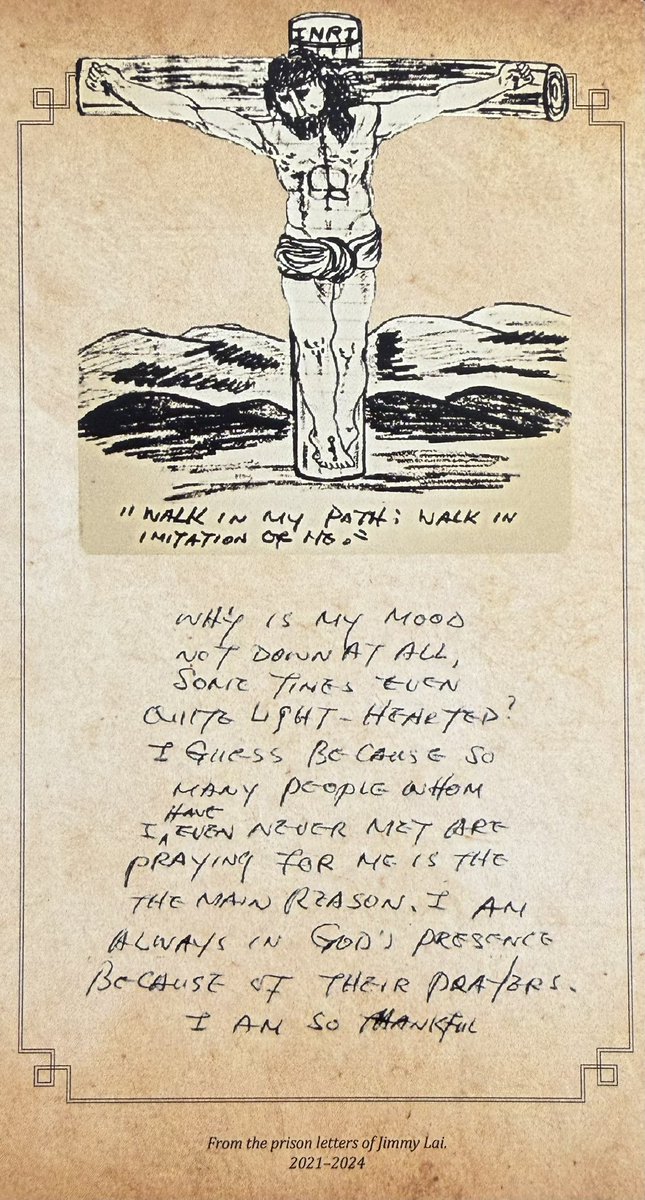 INRI
"WALK IN MY PATH; WALK IN
IMITATION OF ME."
WHY IS MY MOOD
NOT DOWN AT ALL,
SOME TIMES EVEN
QUITE LIGHT-HEARTED?
I GUESS BECAUSE SO
MANY PEOPLE WHOM
HAVE
I EVEN NEVER MET ARE
PRAYING FOR ME IS THE
THE MAIN REASON. I AM
ALWAYS IN GOD'S PRESENCE
BECAUSE OF THEIR PRAYERS.
I AM SO THANKFUL
From the prison letters of Jimmy Lai.
2021–2024